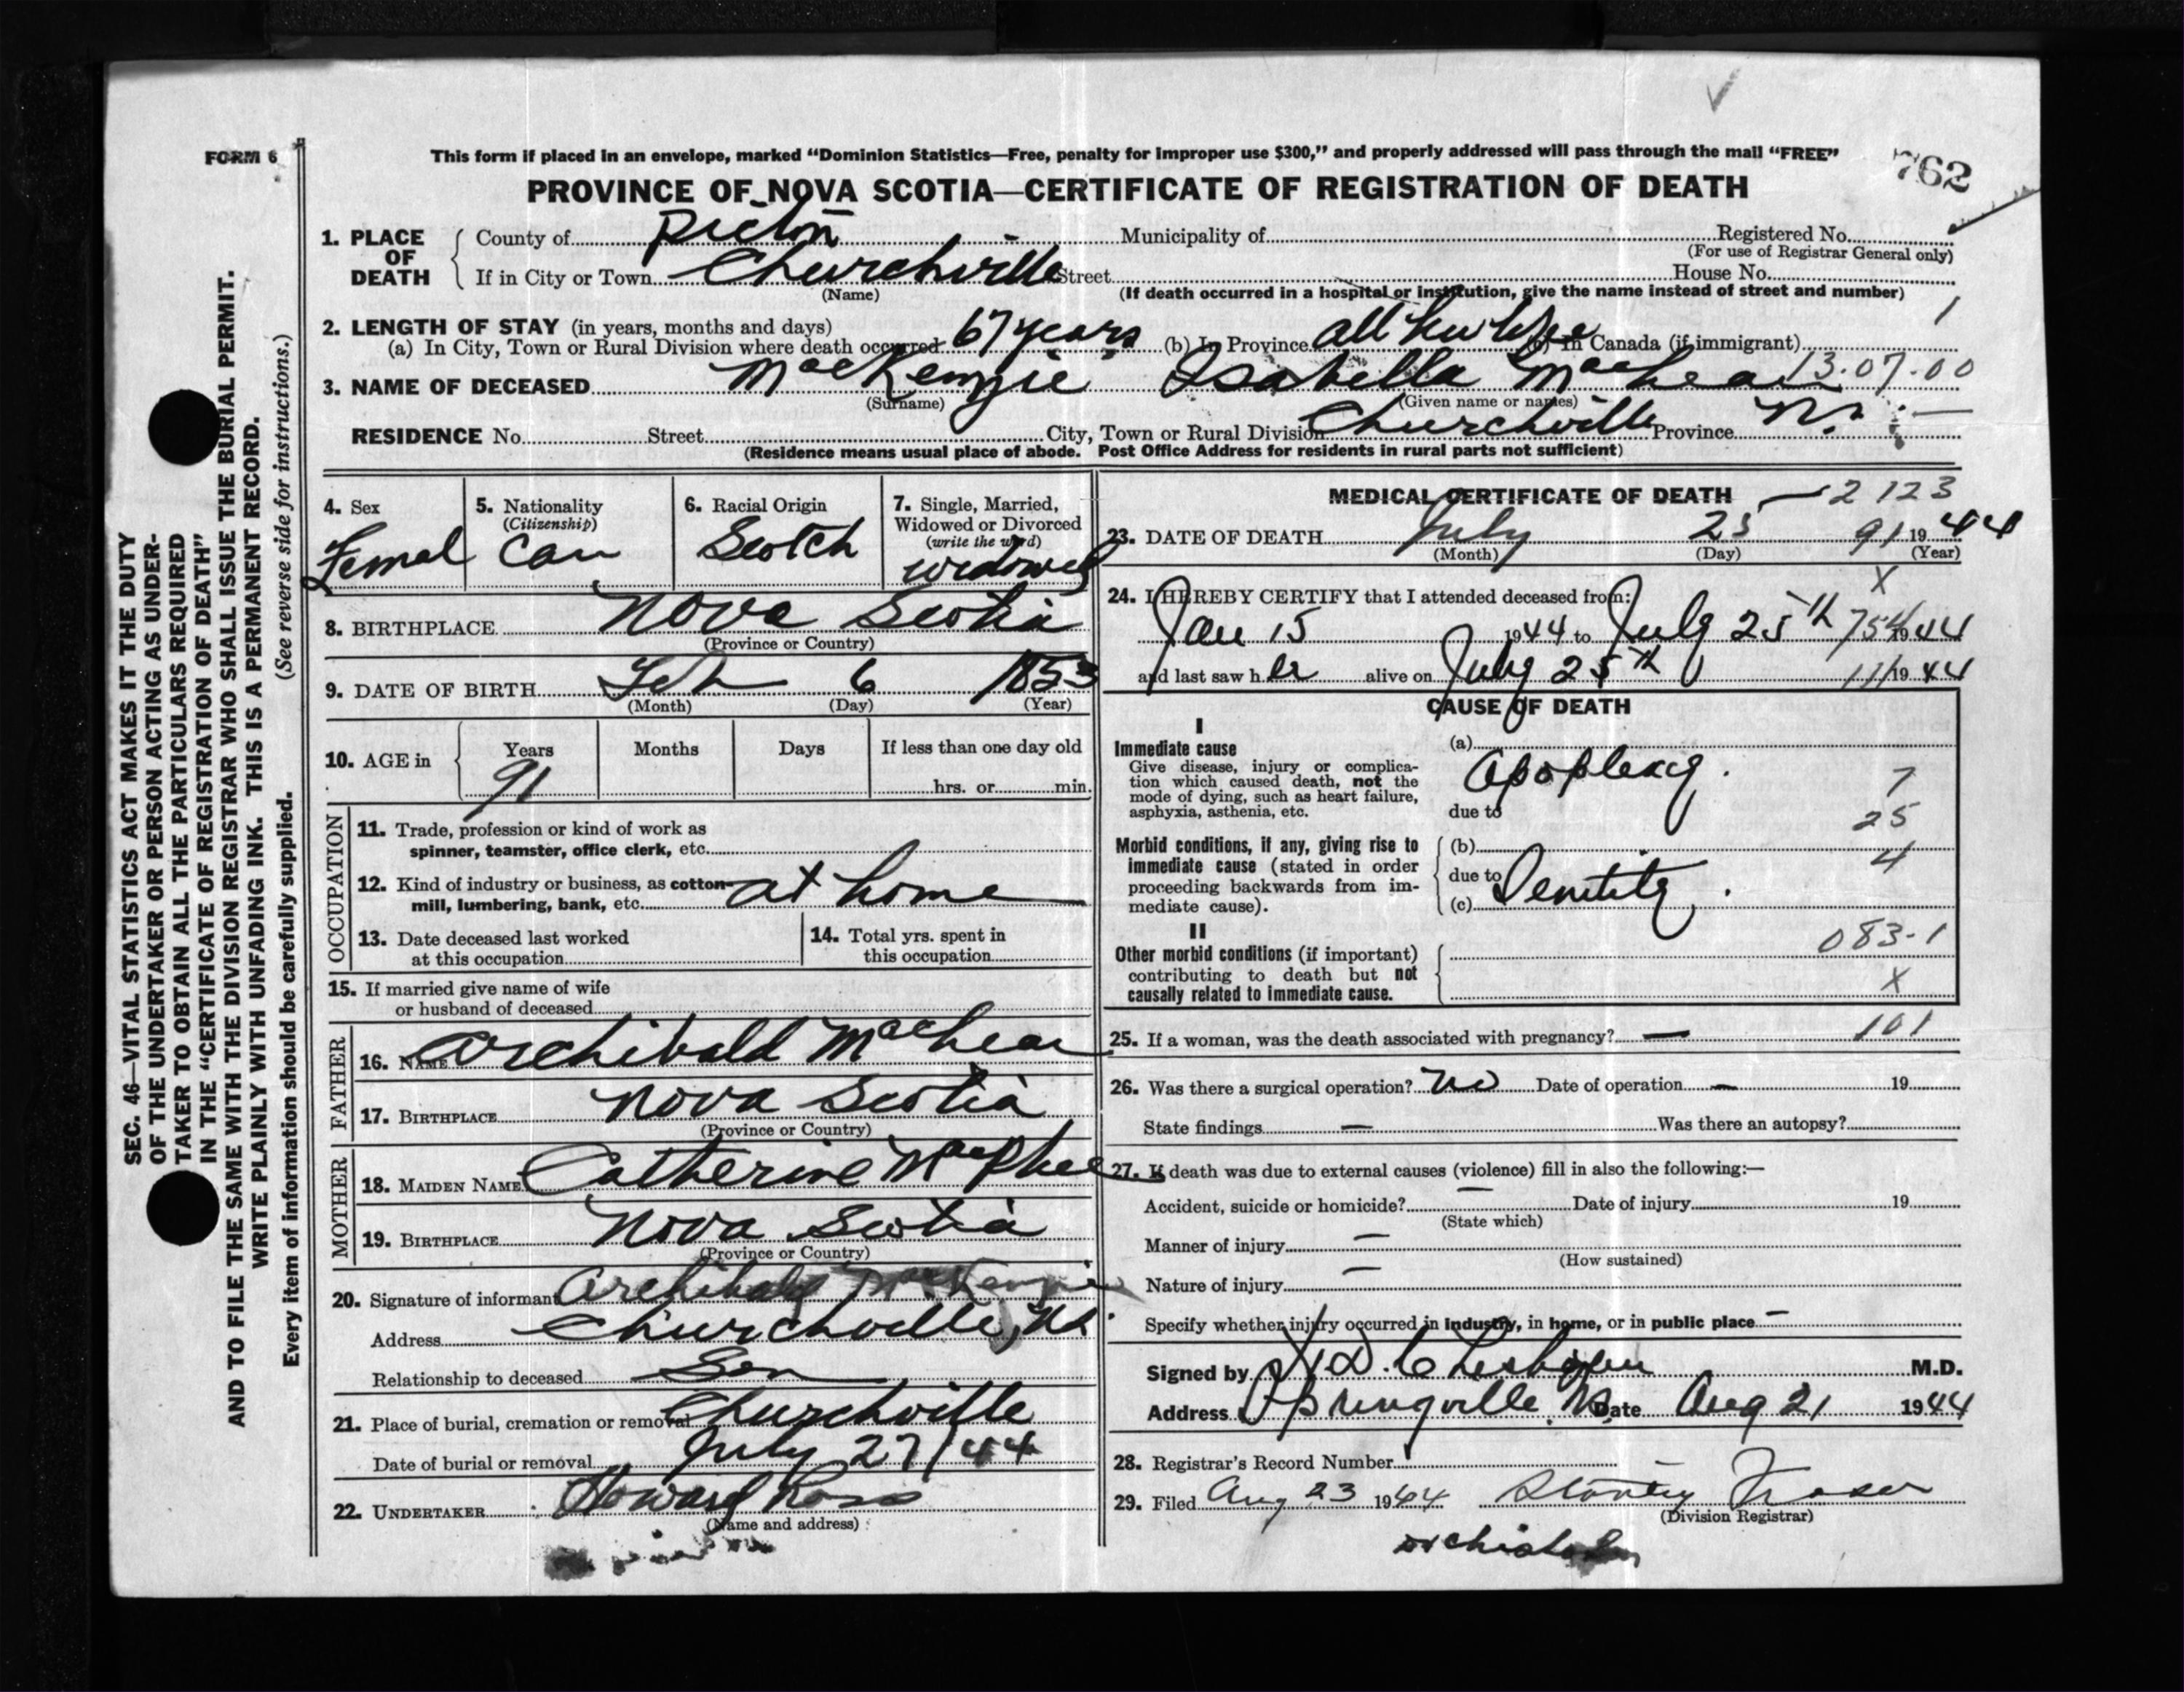 FORM 6
This form if placed in an envelope, marked “Dominion Statistics—Free, penalty for improper use $300,” and properly addressed will pass through the mail “FREE”
762
PROVINCE OF NOVA SCOTIA—CERTIFICATE OF REGISTRATION OF DEATH
1. PLACE OF DEATH
County of Pictou Municipality of Registered No.
(For use of Registrar General only)
If in City or Town Churchville Street House No.
(Name) (If death occurred in a hospital or institution, give the name instead of street and number)
1
2. LENGTH OF STAY (in years, months and days)
(a) In City, Town or Rural Division where death occurred 67 years (b) In Province all her life (c) In Canada (if immigrant)
3. NAME OF DECEASED MacKenzie Isabella MacLean 13.07.00
(Surname) (Given name or names)
RESIDENCE No. Street City, Town or Rural Division Churchville Province N.S.
(Residence means usual place of abode. Post Office Address for residents in rural parts not sufficient)
4. Sex
Femal
5. Nationality
(Citizenship)
Can
6. Racial Origin
Scotch
7. Single, Married,
Widowed or Divorced
(write the word)
widowed
8. BIRTHPLACE Nova Scotia
(Province or Country)
9. DATE OF BIRTH Feb 6 1853
(Month) (Day) (Year)
10. AGE in
Years Months Days If less than one day old
91 hrs. or min.
OCCUPATION
11. Trade, profession or kind of work as
spinner, teamster, office clerk, etc.
12. Kind of industry or business, as cotton-
mill, lumbering, bank, etc. at home
13. Date deceased last worked
at this occupation
14. Total yrs. spent in
this occupation
15. If married give name of wife
or husband of deceased
FATHER
16. NAME Archibald MacLean
17. BIRTHPLACE Nova Scotia
(Province or Country)
MOTHER
18. MAIDEN NAME Catherine MacPhee
19. BIRTHPLACE Nova Scotia
(Province or Country)
20. Signature of informant Archibald MacKenzie
Address Churchville, NS.
Relationship to deceased Son
21. Place of burial, cremation or removal Churchville
Date of burial or removal July 27/44
22. UNDERTAKER Howard Ross
(Name and address)
MEDICAL CERTIFICATE OF DEATH 2123
23. DATE OF DEATH July 25 91 1944
(Month) (Day) (Year)
X
24. I HEREBY CERTIFY that I attended deceased from:
Jan 15 1944 to July 25th 754 1944
and last saw her alive on July 25th 111 1944
CAUSE OF DEATH
I
Immediate cause
Give disease, injury or complica-
tion which caused death, not the
mode of dying, such as heart failure,
asphyxia, asthenia, etc.
(a)
Apoplexy.
7
due to
25
Morbid conditions, if any, giving rise to
immediate cause (stated in order
proceeding backwards from im-
mediate cause).
(b)
4
due to
(c)
II
083-1
Other morbid conditions (if important)
contributing to death but not
causally related to immediate cause.
X
25. If a woman, was the death associated with pregnancy? — 101
26. Was there a surgical operation? No Date of operation — 19
State findings — Was there an autopsy?
27. If death was due to external causes (violence) fill in also the following:—
Accident, suicide or homicide? — Date of injury 19
(State which)
Manner of injury —
(How sustained)
Nature of injury —
Specify whether injury occurred in industry, in home, or in public place —
Signed by M.D.
Address Springville NS Date Aug 21 1944
28. Registrar's Record Number
29. Filed Aug 23 1944 Stanley Fraser
(Division Registrar)
SEC. 46—VITAL STATISTICS ACT MAKES IT THE DUTY
OF THE UNDERTAKER OR PERSON ACTING AS UNDER-
TAKER TO OBTAIN ALL THE PARTICULARS REQUIRED
IN THE “CERTIFICATE OF REGISTRATION OF DEATH”
AND TO FILE THE SAME WITH THE DIVISION REGISTRAR WHO SHALL ISSUE THE BURIAL PERMIT.
WRITE PLAINLY WITH UNFADING INK. THIS IS A PERMANENT RECORD.
(See reverse side for instructions.)
Every item of information should be carefully supplied.